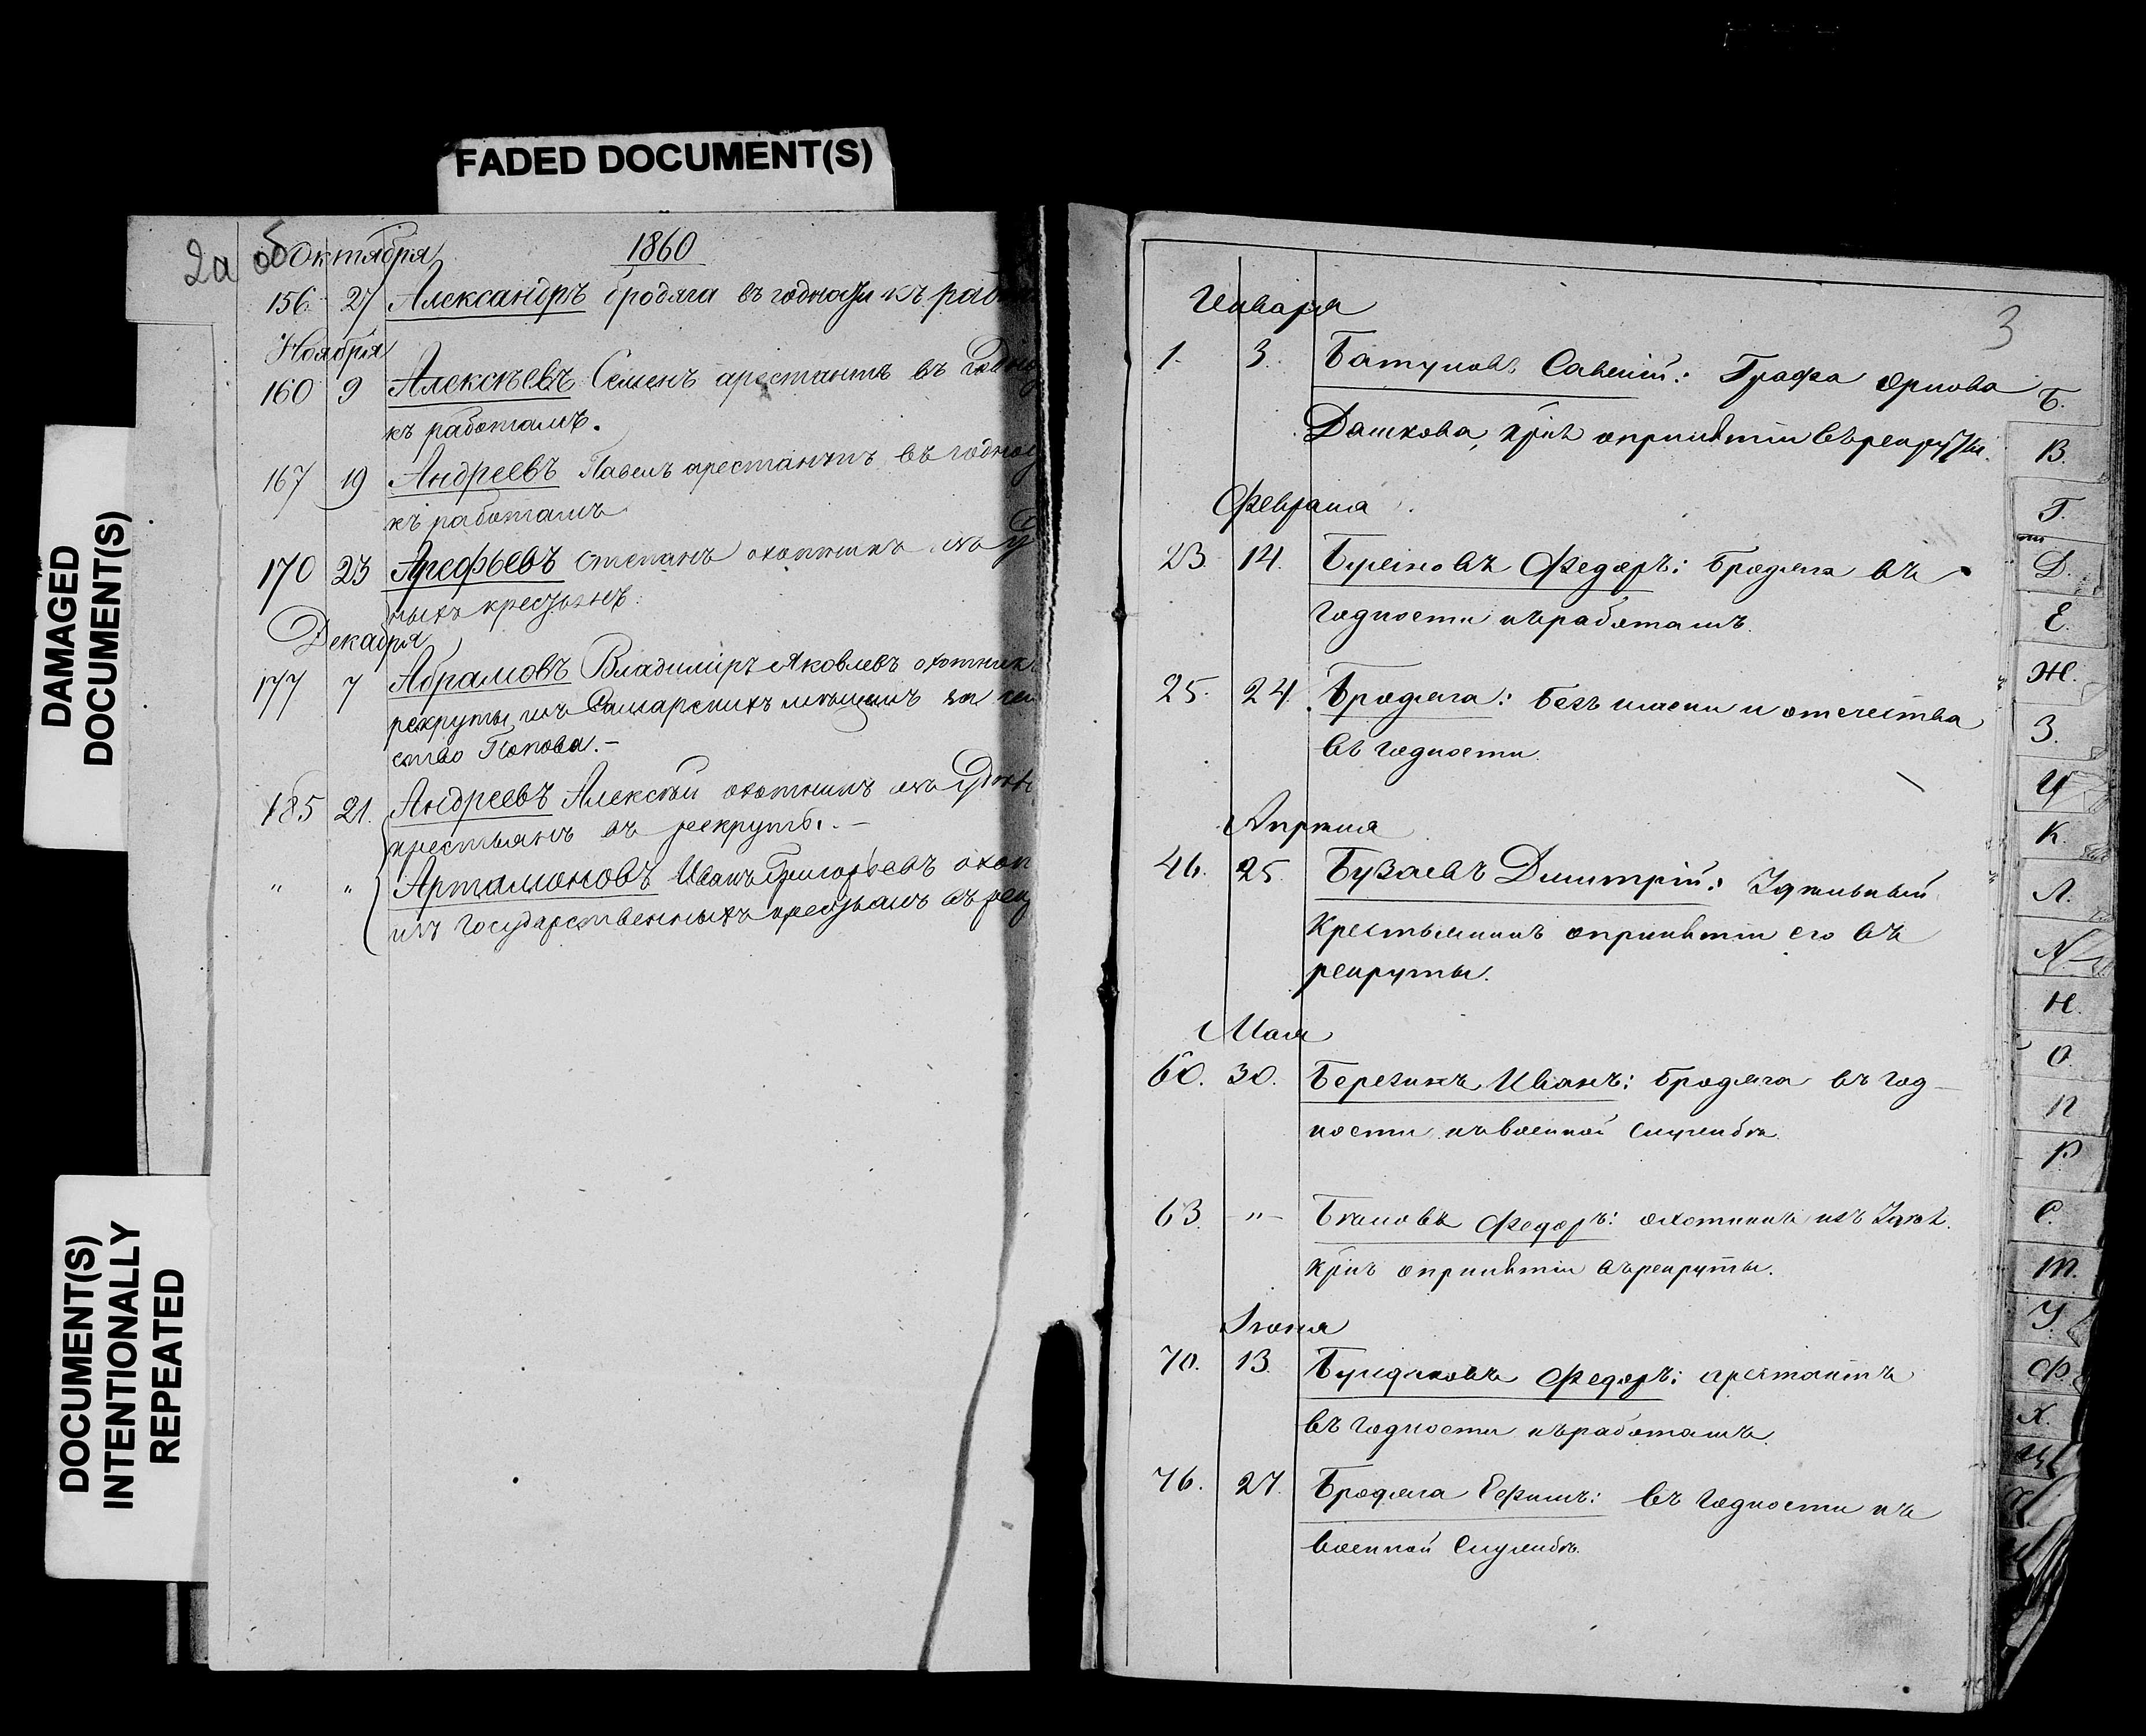 FADED DOCUMENT(S)
DAMAGED
DOCUMENT(S)
DOCUMENT(S)
INTENTIONALLY
REPEATED
2а об
Октября 1860
156 27 Александръ бродяга въ годности къ раб
Ноября
160 9 Алексѣевъ Семенъ арестантъ въ годно
къ работамъ.
167 19 Андреевъ Павелъ арестантъ въ годнос
къ работамъ
170 23 Арефьевъ Степанъ охотникъ изъ У
ныхъ крестьянъ.
Декабря
177 7 Абрамовъ Владимiръ Яковлевъ охотник
рекруты изъ Самарскихъ мѣщанъ за
ство Попова.-
185 21. Андреевъ Алексѣй охотникъ изъ Удѣл
крестьянъ въ рекруты. -
" " Артамоновъ Иванъ Григорьевъ охот
изъ Государственныхъ крестьянъ въ рек
3
Января
1. 3. Батуновъ Савелій: Графа Орлова
Дашкова, кр͠нъ опринятіи въ рекруты.
Февраля
23. 14. Федоръ: бродяга въ
годности къ работамъ.
25. 24. Бродяга: безъ имени и отечества
въ годности.
Апрѣля
46. 25. Бузаевъ Димитрій: Удѣльный
Крестьянинъ опринятіи его въ
рекруты.
Мая
60. 30. Березинъ Иванъ: бродяга въ год-
ности къ военной службѣ.
63. -"- Федоръ: охотникъ изъ Удѣл.
кр͠нъ опринятіи въ рекруты.
Іюня
70. 13. Федоръ: арестантъ
въ годности къ работамъ.
76. 27. Бродяга Ефимъ: въ годности къ
военной службѣ.
Б.
В.
Г.
Д.
Е.
Ж.
З.
И
К.
Л.
М.
Н.
О.
П
Р
С.
Т.
У.
Ф.
Х.